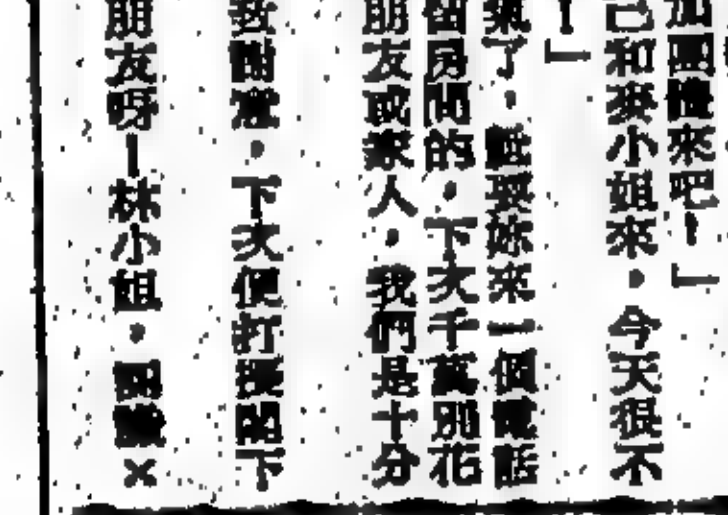 加團體來吧！」
己和麥小姐來，今天很不
！」
氣了，祇要妳來一個電話
留房間的，下次千萬別花
朋友或家人，我們是十分
致謝意，下次便打擾閣下
朋友呀！林小姐，團體×